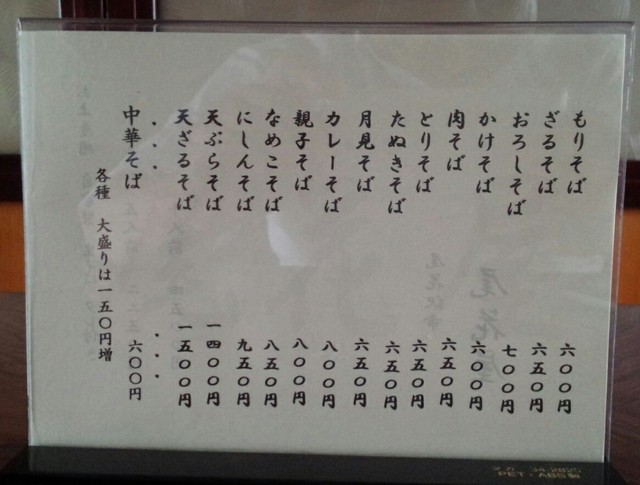 もりそば 六〇〇円
ざるそば 六五〇円
おろしそば 七〇〇円
かけそば 六〇〇円
肉そば 六五〇円
とりそば 六五〇円
たぬきそば 六五〇円
月見そば 六五〇円
カレーそば 八〇〇円
親子そば 八〇〇円
なめこそば 八五〇円
にしんそば 九五〇円
天ぷらそば 一四〇〇円
天ざるそば 一五〇〇円
・・・ ・・・
中華そば 六〇〇円
各種 大盛りは一五〇円増
PET・ABS製